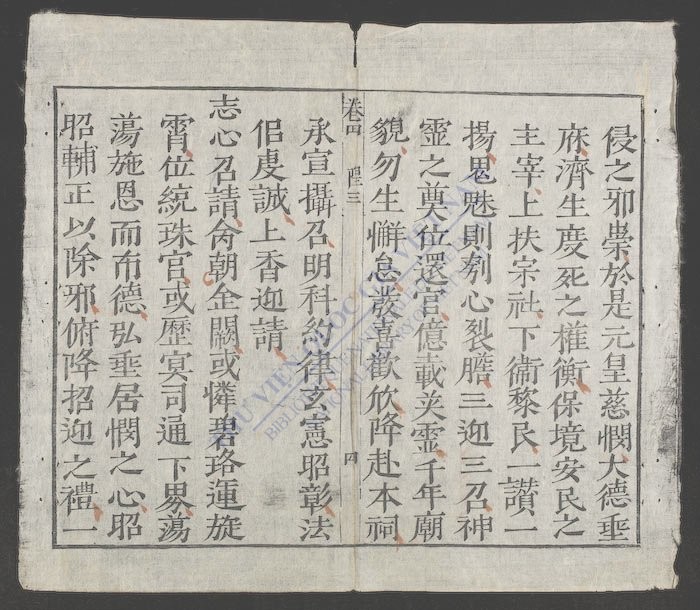 侵之邪祟於是元皇慈憫大德垂
庥濟生度死之權衡保境安民之
主宰上扶宗社下衞黎民一讃一
揚鬼魅則刳心裂膽三迎三召神
灵之奠位還官億載英灵千年廟
貌勿生懈怠發喜歡欣降赴本祠
卷四
四
承宣攝召明科約律玄憲昭彰法
侶虔誠上香迎請
志心召請侖朝金闕或憐碧珞運旋
霄位統珠宮或歷冥司通下界蕩
蕩施恩而布德弘垂居憫之心昭
昭輔正以除邪俯降招迎之禮一
THƯ VIỆN QUỐC GIA VIỆT NAM